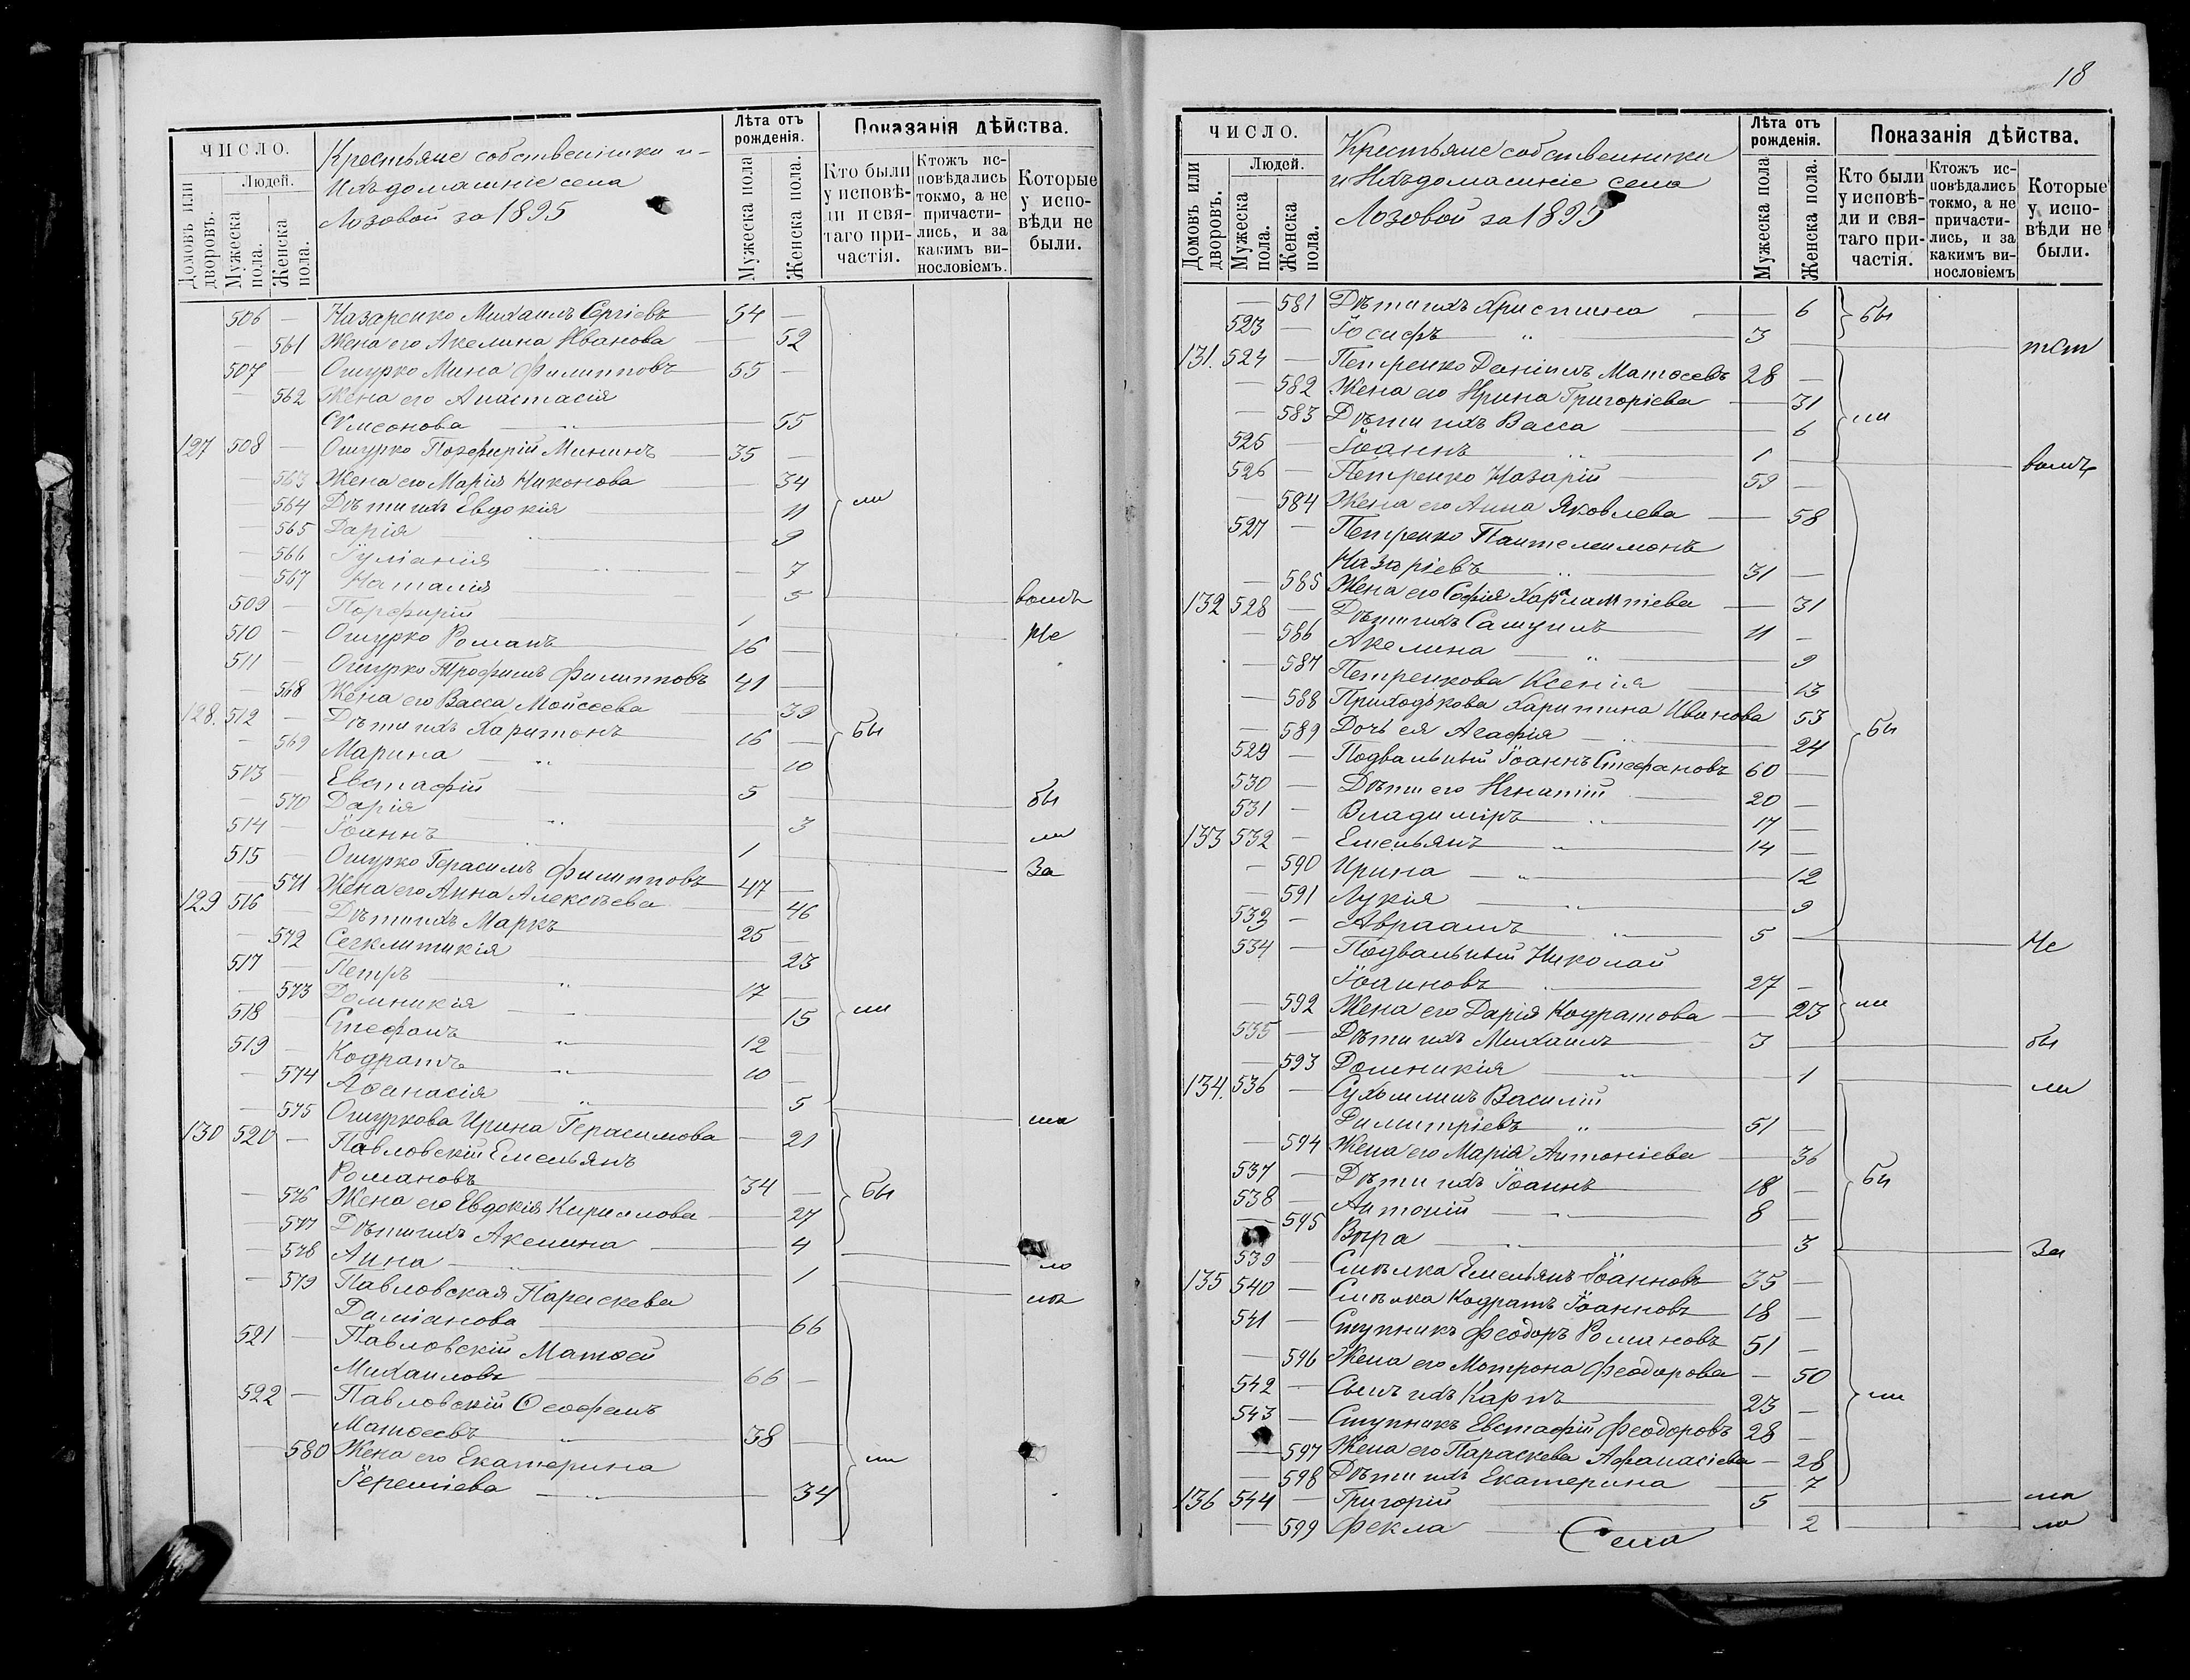 ЧИСЛО.
Домовъ или дворовъ.
Людей.
Мужеска пола.
Женска пола.
Крестьяне собственники и
Ихъ домашніе села
Лозовой за 1895
Лѣта отъ рожденія.
Мужеска пола
Женска пола.
Показанія дѣйства.
Кто были у исповѣди и святаго причастія.
Ктожъ исповѣдались токмо, а не причастились, и за какимъ винословіемъ.
Которые у исповѣди не были.
506 — Назаренко Михаилъ Сергіевъ 54 —
— 561 Жена его Акелина Иванова — 52
507 — Ошурко Мина Филипповъ 55 —
— 562 Жена его Анастасія
Сѵмеонова — 55
127 508 — Ошурко Порфирій Мининъ 35 —
— 563 Жена его Марія Никонова — 34
— 564 Дѣти ихъ Евдокія — 11 ли
— 565 Дарія — 9
— 566 Іуліанія — 7
— 567 Наталія — 5
509 — Порфирій 1 — волъ
510 — Ошурко Романъ 16 — Не
511 — Ошурко Трофимъ Филипповъ 41 —
— 568 Жена его Васса Мойсеева — 39
128. 512 — Дѣти ихъ Харитонъ 16 — Бы
— 569 Марина „ — 10
513 — Евстафій 5 —
— 570 Дарія „ — 3 бы
514 — Іоаннъ 1 ли
515 — Ошурко Герасимъ Филипповъ 47 — За
— 571 Жена его Анна Алексѣева — 46
129 516 — Дѣти ихъ Маркъ 25 —
— 572 Сегклитикія — 23
517 — Петръ „ 17 —
— 573 Домникія — 15 ли
518 — Стефанъ „ 12
519 — Кодратъ „ 10 —
— 574 Аѳанасія „ — 5
— 575 Ошуркова Ирина Герасимова — 21 ма
130 520 — Павловскій Емельянъ
Романовъ 34 — Бы
— 576 Жена его Евдокія Кириллова — 27
— 577 Дѣти ихъ Акелина — 4
— 578 Анна „ — 1 ло
— 579 Павловская Параскева
Даміанова — 66
521 — Павловскій Матѳей
Михаиловъ 66 —
522 — Павловскій Ѳеофанъ
Матѳеевъ „ 38 —
— 580 Жена его Екатерина ли
Іереміева „ — 34
18
ЧИСЛО.
Домовъ или дворовъ.
Людей.
Мужеска пола.
Женска пола.
Крестьяне собственники
и Ихъ домашніе села
Лозовой за 1895
Лѣта отъ рожденія.
Мужеска пола
Женска пола.
Показанія дѣйства.
Кто были у исповѣди и святаго причастія.
Ктожъ исповѣдались токмо, а не причастились, и за какимъ винословіемъ
Которые у исповѣди не были.
— 581 Дѣти ихъ Христина — 6 бы
523 — Іосифъ „ 3
131. 524 — Петренко Даніилъ Матѳеевъ 28 —
— 582 Жена его Ирина Григоріева — 31
— 583 Дѣти ихъ Васса — 6 ли
525 — Іоаннъ „ 1
526 — Петренко Назарій 59 —
— 584 Жена его Анна Яковлева — 58
527 — Петренко Пантелеимонъ
Назаріевъ „ 31 —
— 585 Жена его Софія Харалампіева — 31
132 528 — Дѣти ихъ Самуилъ 11 —
— 586 Акелина „ — 9
— 587 Петренкова Ксенія — 13
— 588 Приходькова Харитина Иванова 53
— 589 Дочь ея Агафія — 24 Бы
529 — Подвальный Іоаннъ Стефановъ 60 —
530 — Дѣти его Игнатій 20 —
531 — Владиміръ „ 17 —
133 532 — Емельянъ „ 14 —
— 590 Ирина „ — 12
— 591 Лукія „ — 9
533 — Авраамъ „ 5 — Не
534 — Подвальный Николай
Іоанновъ 27 —
— 592 Жена его Дарія Кодратова — 23 ли
535 — Дѣти ихъ Михаилъ 3 бы
— 593 Домникія „ — 1 ли
134. 536 — Василій
Димитріевъ „ 51 —
— 594 Жена его Марія Антоніева — 36
537 — Дѣти ихъ Іоаннъ 18 — Бы
538 — Антоній „ 8 —
— 595 Вѣра „ — 3 За
539 — Емельянъ Іоанновъ 35 —
135 540 — Кодратъ Іоанновъ 18 —
541 — Ступникъ Феодоръ Романовъ 51 —
— 596 Жена его Мотрона Феодорова — 50
542 — Сынъ ихъ Карпъ 23 — ли
543 — Ступникъ Евстафій Феодоровъ 28 —
— 597 Жена его Параскева Афанасіева — 28
— 598 Дѣти ихъ Екатерина — 7
136 544 — Григорій 5 ма
— 599 Фекла — 2 ло
Села